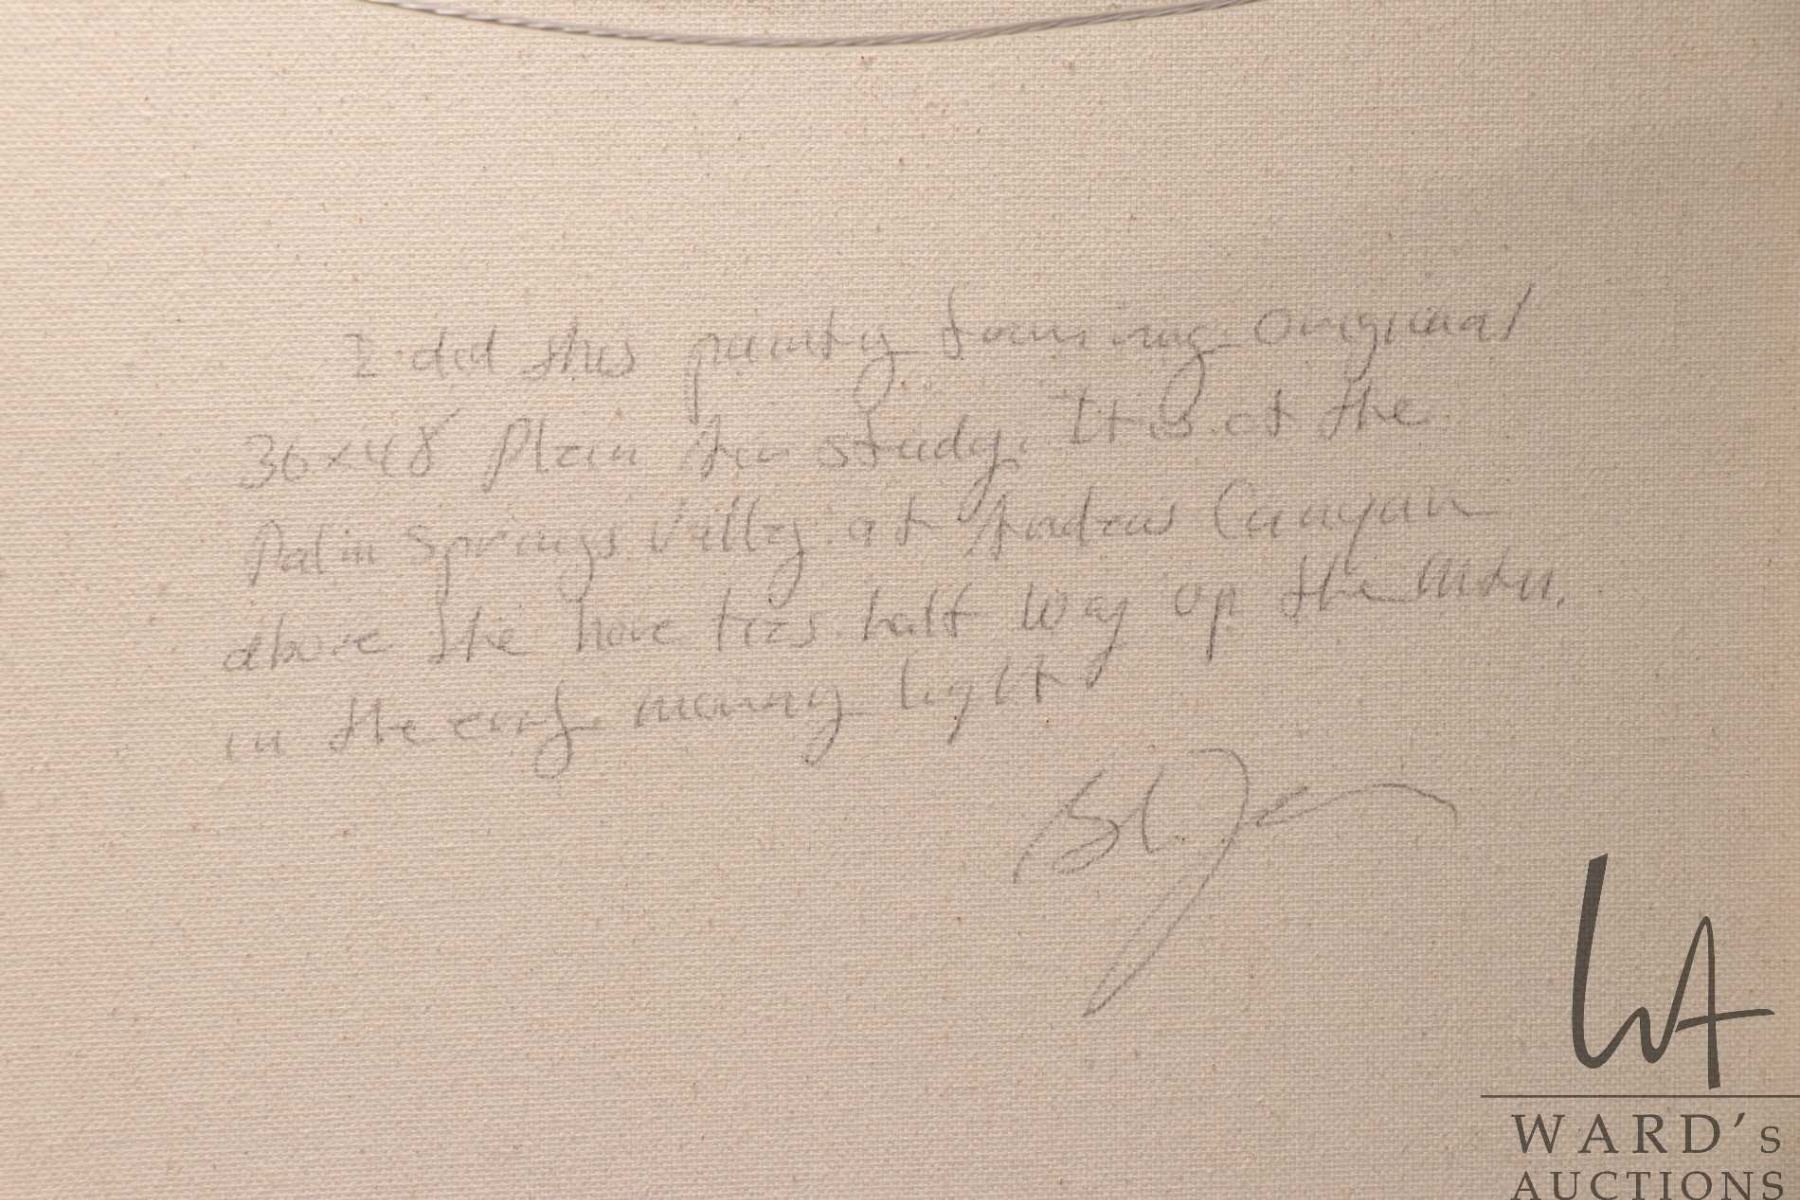 I did this painting from my original
36x48 Plein Air study. It is of the
Palm Springs Valley at Andreas Canyon
above the trees half way up the mtn.
in the early morning light
WA
WARD's
AUCTIONS